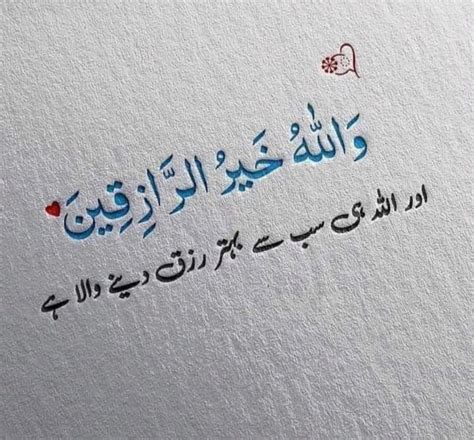 وَاللّٰهُ خَيْرُ الرَّازِقِينَ
اور اللہ ہی سب سے بہتر رزق دینے والا ہے